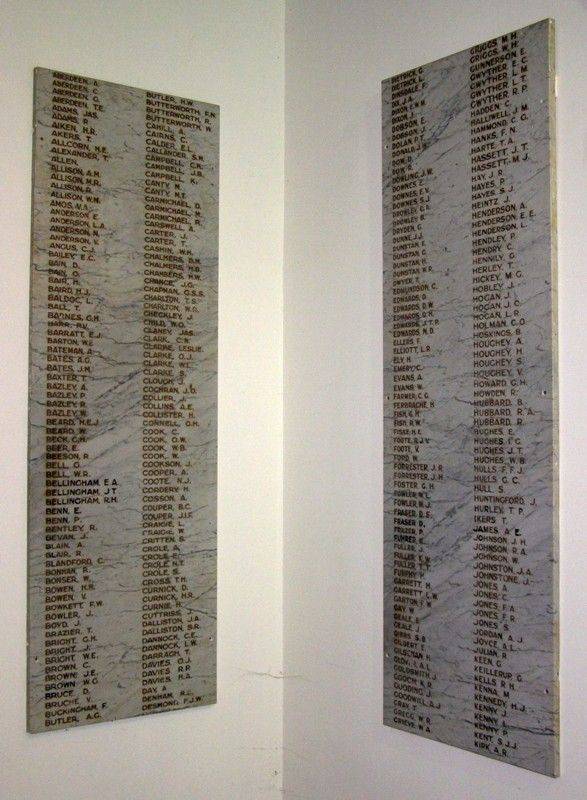 ABERDEEN, A.
ABERDEEN, C.
ABERDEEN, G.
ABERDEEN, T.E.
ADAMS, JAS.
ADAMS, R.
AIKEN, H.R.
AKERS, T.
ALLCORN, H.E.
ALEXANDER, T.
ALLEN,
ALLISON, A.M.
ALLISON, M.R.
ALLISON, R.
ALLISON, W.W.
AMOS, V.A.
ANDERSON, E.
ANDERSON, L.A.
ANDERSON, N.
ANDERSON, V.
ANGUS, C.J.
BAILEY, E.C.
BAIN, D.
BAIN, G.
BAIR, H.
BAIRD, H.J.
BALDOC, L.
BALL, T.
BARNES, G.H.
BARR, R.V.
BARRATT, E.J.
BARTON, W.E.
BATEMAN, A.
BATES, A.G.
BATES, J.M.
BAXTER, T.
BAZLEY, A.
BAZLEY, P.
BAZLEY, R.
BAZLEY, W.
BEARD, H.E.J.
BEARD, W.
BECK, C.H.
BEER, E.
BEESON, R.
BELL, G.
BELL, W.R.
BELLINGHAM, E.A.
BELLINGHAM, J.T.
BELLINGHAM, R.H.
BENN, E.
BENN, P.
BENTLEY, R.
BEVAN, J.
BLAIN, A.
BLAIR, R.
BLANDFORD, C.
BONHAM, R.
BONSER, W.
BOWEN, H.H.
BOWEN, V.
BOWKETT, F.W.
BOWLER, J.
BOYD, J.
BRAZIER, T.
BRIGHT, G.H.
BRIGHT, J.
BRIGHT, W.E.
BROWN, C.
BROWN, J.E.
BROWN, W.G.
BRUCE, D.
BRUCHE, V.
BUCKINGHAM, F.
BUTLER, A.G.
BUTLER, H.W.
BUTTERWORTH, F.N.
BUTTERWORTH, R.
BUTTERWORTH, W.
CAHILL, A.
CAIRNS, C.
CALDER, E.L.
CALLANDER, S.M.
CAMPBELL, C.K.
CAMPBELL, J.B.
CAMPBELL, K.
CANTY, M.
CANTY, M.E.
CARMICHAEL, D.
CARMICHAEL, M.
CARMICHAEL, R.
CARSWELL, A.
CARTER, J.
CARTER, T.
CASHIN, W.H.
CHALMERS, D.H.
CHALMERS, H.B.
CHAMBERS, H.W.
CHANCE, J.G.
CHAPMAN, G.S.S.
CHARLTON, T.S.
CHARLTON, W.R.
CHECKLEY, J.
CHILD, W.O.
CHANCE, JAS.
CLARK, C.N.
CLARKE, LESLIE.
CLARKE, O.J.
CLARKE, W.L.
CLARKE, S.
CLOUGH, J.
COCHRAN, J.D.
COLLIER, J.
COLLINS, A.E.
COLLISTER, H.
CORNELL, G.H.
COOK, C.
COOK, O.W.
COOK, W.B.
COOK, W.
COOKSON, J.
COOPER, A.
COOTE, N.J.
CORDERY, H.
COSSON, A.
COUPER, B.C.
COUPER, J.I.F.
CRAIGIE, L.
CRAIGIE, W.
CRITTEN, S.
CROLE, A.
CROLE, E.
CROLE, N.T.
CROLE, S.
CROSS, T.H.
CURNICK, D.
CURNICK, H.R.
CURNIE, H.
CUTTRISS,
DALLISTON, J.A.
DALLISTON, S.R.
DANNOCK, C.E.
DANNOCK, L.W.
DARRAGH, T.
DAVIES, O.J.
DAVIES, R.P.
DAVIES, H.A.
DAY, A.
DENHAM, R.L.
DESMOND, F.J.W.
DIETRICK, G.
DIETRICK, L.
DINSDALE, F.
DIX, J.A.
DIXON, E.W.M.
DIXON, J.
DOBSON, E.
DOBSON, J.
DOLAN, P.T.
DONALD, J.
DOW, D.
DOW, R.
DOWLING, J.W.
DOWNES, C.
DOWNES, E.V.
DOWNES, S.J.
DROWLEY, G.A.
DROWLEY, B.
DRYDEN, G.
DUNNE, J.J.
DUNSTAN, E.
DUNSTAN, G.
DUNSTAN, H.
DUNSTAN, W.R.
DWYER, T.
EDMUNDSON, C.
EDWARDS, D.
EDWARDS, D.W.
EDWARDS, G.H.
EDWARDS, J.T.P.
EDWARDS, N.D.
ELLERS, F.
ELLIOTT, L.R.
ELY, H.
EMERY, C.
EVANS, A.
EVANS, W.
FARMER, C.G.
FERBRACHE, H.
FISH, G.H.
FISH, R.W.
FISKE, H.E.
FOOTE, R.J.V.
FOOTE, V.
FORD, W.
FORRESTER, J.R.
FORRESTER, M.J.
FOSTER, G.H.
FOWLER, W.L.
FOWLER, M.J.
FRASER, D.E.
FRASER, D.
FRAZER, P.
FUHRER, E.
FULLER, J.
FULLER, V.W.
FULLER, T.
FURPHY, T.
GARRETT, H.
GARRETT, L.W.
GARTON, F.W.
GAY, W.
GEALE, E.
GEALE, J.
GIBBS, S.B.
GILBERT, E.
GILSENAN, H.
GLOVI, L.A.
GOLDSMITH, J.
GOOCH, K.R.
GOODING, J.
GOODWILL, A.J.
GRAY, T.
GREGG, W.R.
GRIEVE, W.A.
GRIGGS, M.H.
GRIGGS, W.H.
GUNNERSON, E.
GWYTHER, E.C.
GWYTHER, L.M.
GWYTHER, L.T.
GWYTHER, R.P.
HADDEN, C.
HALLIWELL, J.M.
HAMMOND, C.G.
HANKS, F.N.
HARTE, T.A.
HASSETT, J.T.
HASSETT, M.J.
HAY, J.R.
HAYES, P.
HAYES, S.J.
HEINTZ, J.
HENDERSON, A.
HENDERSON, E.E.
HENDERSON, L.
HENDLEY, P.
HENDRY, C.
HENNILY, G.
HERLEY, T.
HICKEY, M.G.
HOBLEY, J.
HOGAN, J.L.
HOGAN, J.O.
HOGAN, L.R.
HOLMAN, C.O.
HOSKINGS, B.
HOUGHEY, A.
HOUGHEY, H.
HOUGHEY, S.
HOUGHEY, V.
HOWARD, G.H.
HOWDEN, R.
HUBBARD, B.
HUBBARD, R.A.
HUBBARD, R.
HUGHES, E.
HUGHES, I.C.
HUGHES, J.T.
HUGHES, W.B.
HULLS, F.F.J.
HULLS, G.C.
HULL, S.
HUNTINGFORD, J.
HURLEY, T.P.
IKERS, T.
JAMES, A.E.
JOHNSON, J.H.
JOHNSON, R.A.
JOHNSON, W.
JOHNSTON, J.A.
JOHNSTONE, J.
JONES, A.
JONES, E.
JONES, F.A.
JONES, F.R.
JONES, S.
JORDAN, A.J.
JOYCE, A.L.
JULIAN, R.
KEEN, G.
KEILLERUP, G.
KELLS, R.H.
KENNA, M.
KENNEDY, H.J.
KENNY, J.
KENNY, L.
KENNY, P.
KENT, S.J.J.
KIRK, A.R.